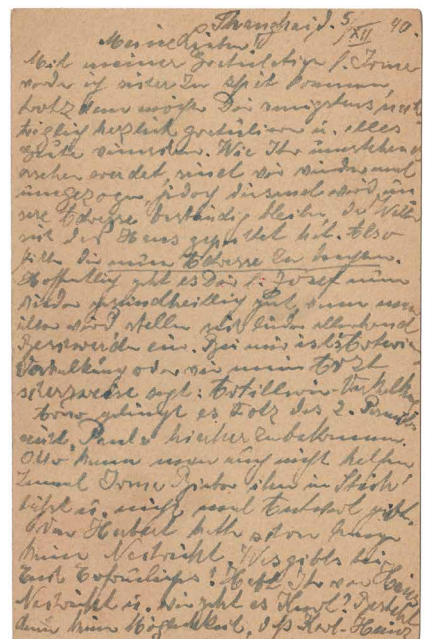 Shanghai d. 5/XII 40.
Meine Lieben!
Mit meiner Gratulation l. Irma
werde ich sicher zu spät kommen,
trotzdem möchte Dir wenigstens nach
träglich herzlich gratulieren u. alles
Gute wünschen. Wie Ihr umstehend
ersehen werdet, sind wir wieder mal
umgezogen, jedoch diesmal wird un
sere Adresse beständig bleiben, da Willi
sich das Haus gepachtet hat. Also
bitte die neue Adresse zu beachten.
Hoffentlich geht es Dir l. Josef nun
wieder gesundheitlich gut, wenn man
älter wird stellen sich leider allerhand
Beschwerden ein. Bei mir ist es Arterien
Verkalkung oder wie mein Arzt
scherzweise sagt: Artillerie-Verkalkung
gelingt es trotz des 2. Permits
nicht, Paula hierher zu bekommen.
Otto kann man auch nicht helfen
zumal Irma ihn im Stich
läßt u. nicht mal Antwort gibt.
Von Herbert hatte schon lange
keine Nachricht. Was gibts bei
Euch Erfreuliches? Habt Ihr von Heinz
Nachricht u. wie geht es Karl? Besteht
denn keine Möglichkeit, daß Karl-Heinz